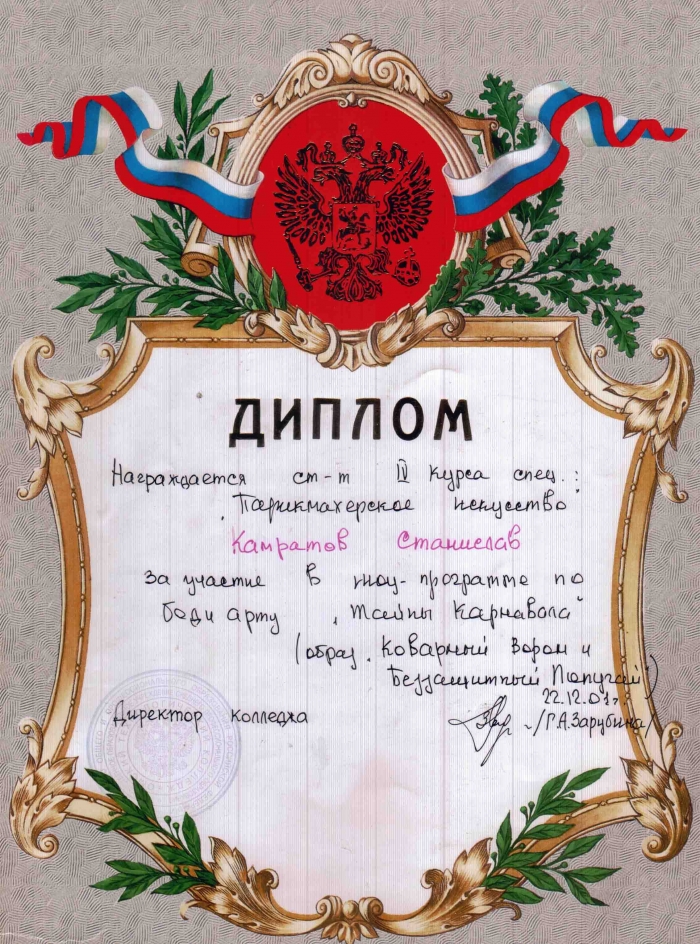 ДИПЛОМ
Награждается ст-т IV курса спец.:
"Парикмахерское искусство"
Камратов Станислав
за участие в шоу-программе по
боди арту "Тайны Карнавала"
(образ "Коварный Ворон и
Беззащитный Попугай")
22.12.01г.
Директор колледжа /Г.А.Зарубина/